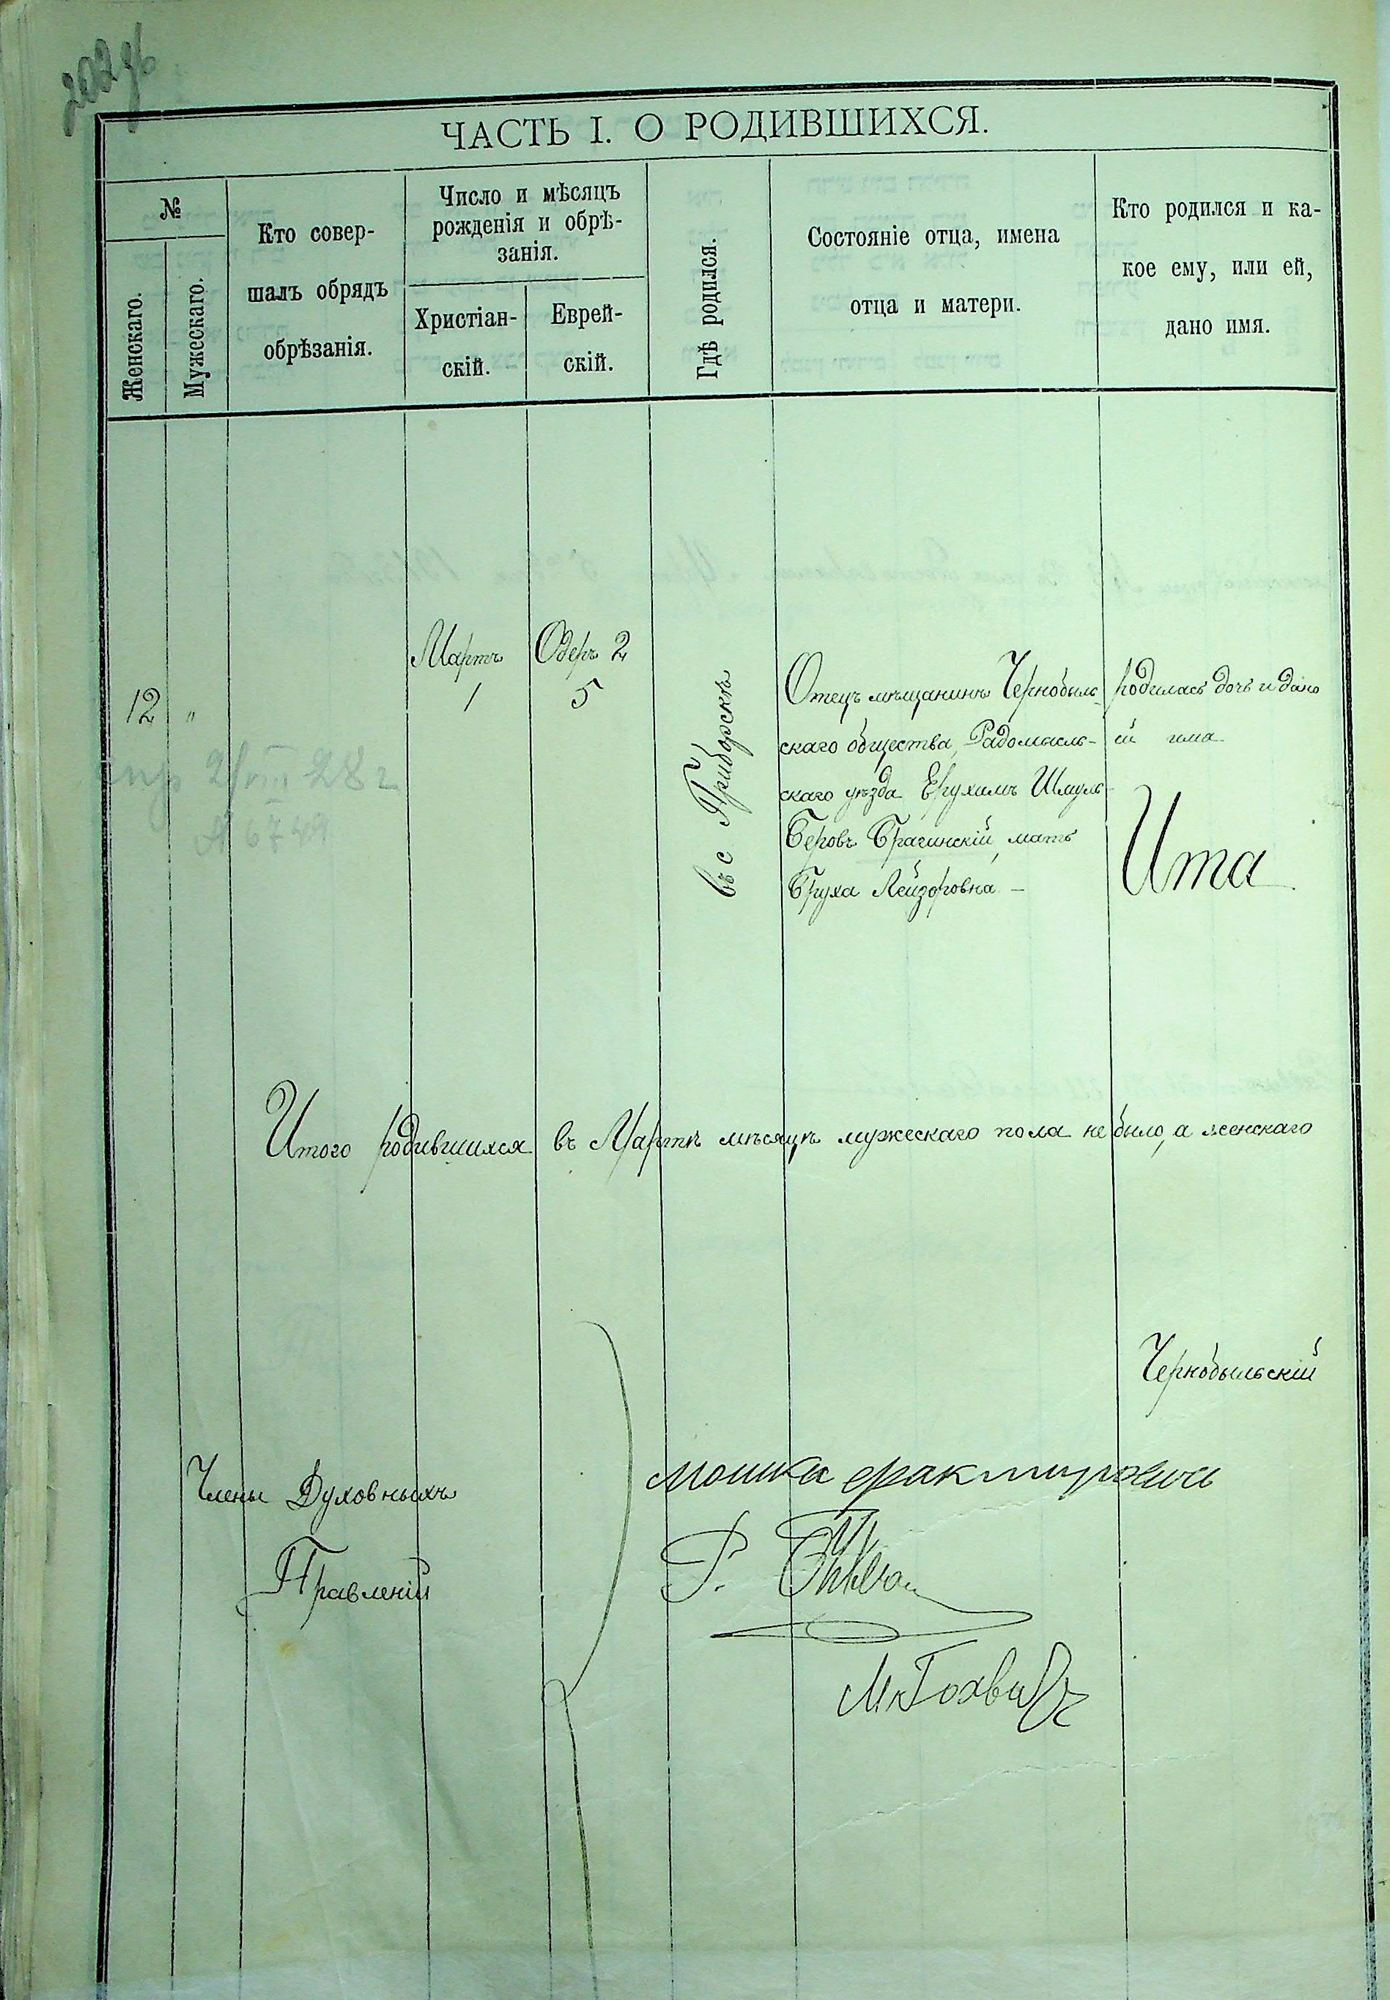 202 об
ЧАСТЬ I. О РОДИВШИХСЯ.
№
Женскаго.
Мужескаго.
Кто совер-
шалъ обрядъ
обрѣзанія.
Число и мѣсяцъ
рожденія и обрѣ-
занія.
Христіан-
скій.
Еврей-
скій.
Гдѣ родился.
Состояніе отца, имена
отца и матери.
Кто родился и ка-
кое ему, или ей,
дано имя.
12
"
Мартъ
1
Одеръ 2
5
въ с Приборскѣ
Отецъ мѣщанинъ Чернобыль-
скаго общества, Радомысль-
скаго уѣзда Ерухимъ Шмуль-
Беровъ Брагинскій, мать
Бруха Лейзоровна —
родилась дочь и дано
ей имя
Ита
2/VIII 28 г
№ 6749
Итого родившихся въ Мартѣ мѣсяцѣ мужескаго пола не было, а женскаго
Чернобыльскій
Члены Духовныхъ
Правленій
мошка
Р.
М.